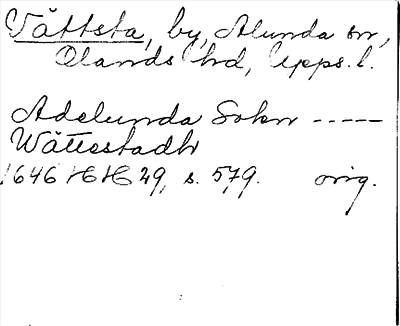 Vättsta, by, Alunda sn,
Olands hd, Upps. l.
Adelunda Sokn -----
Wättsstadh
1646 HH 29, s. 579. orig.